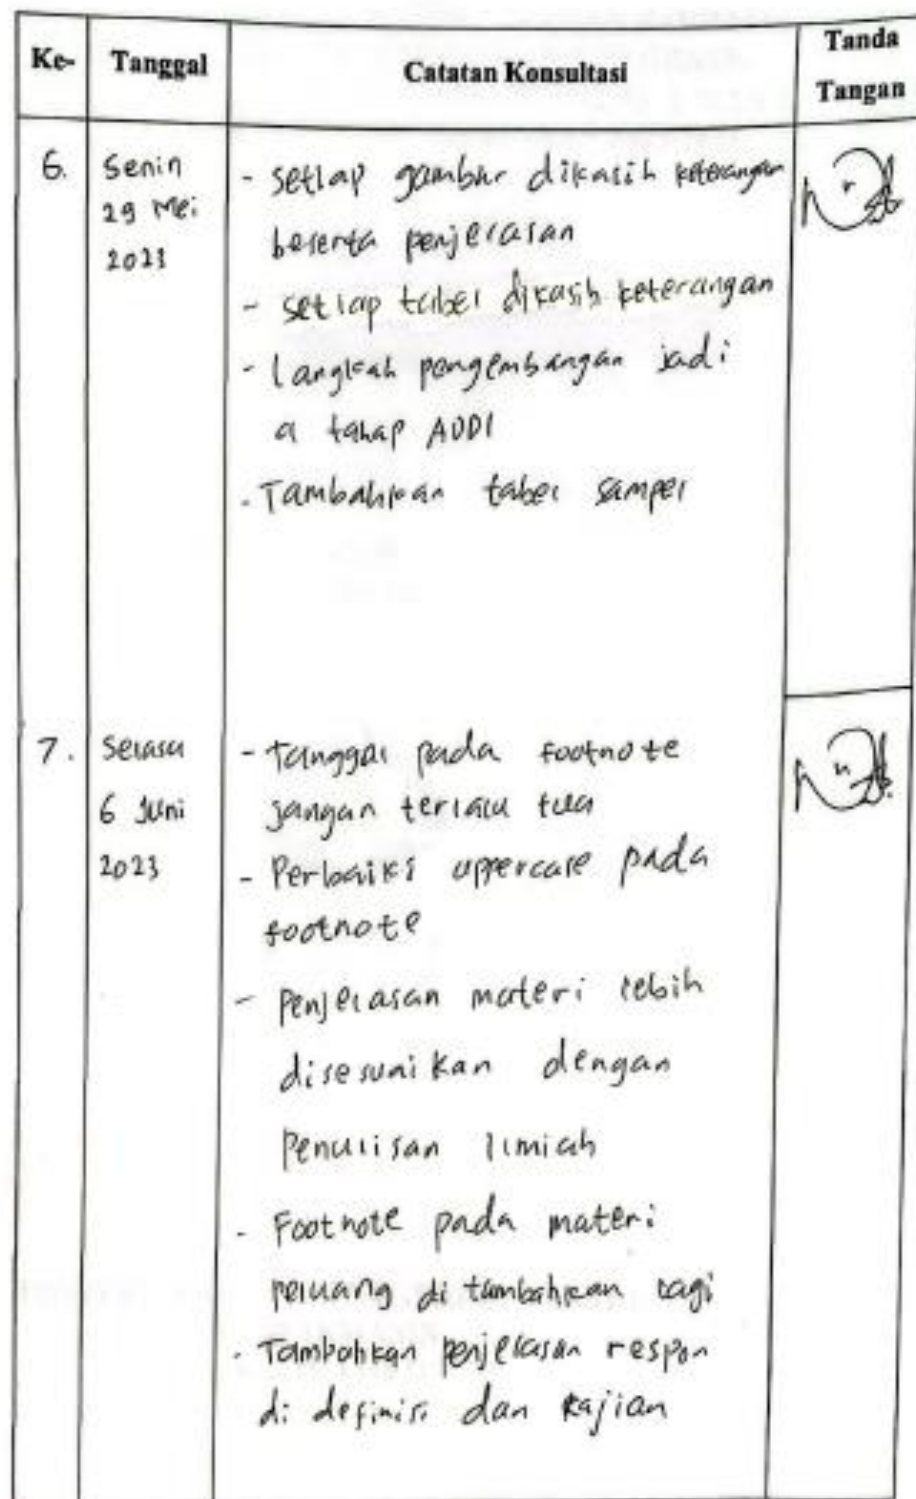 Ke- Tanggal Catatan Konsultasi Tanda Tangan
6. Senin 29 Mei 2023
- setiap gambar dikasih keterangan
beserta penjelasan
- setiap tabel dikasih keterangan
- Langkah pengembangan jadi
a tahap ADDI
- Tambahkan tabel sampel
7. Selasa 6 Juni 2023
- Tanggal pada footnote
jangan terlalu tua
- Perbaiki uppercase pada
footnote
- Penjelasan materi lebih
disesuaikan dengan
Penulisan Ilmiah
- Footnote pada materi
peluang di tambahkan lagi
- Tambahkan penjelasan respon
di definisi dan kajian